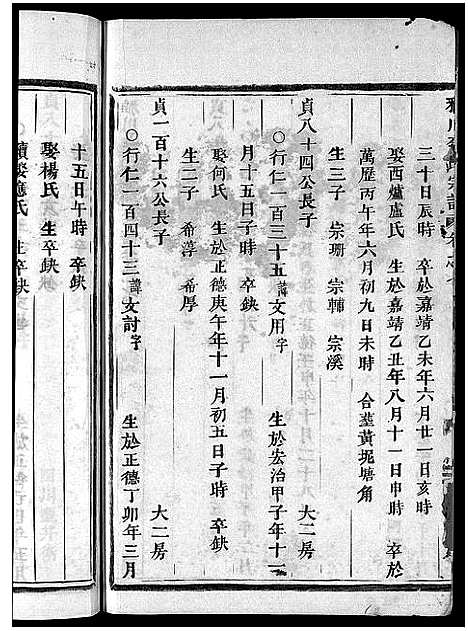 三十日辰時　卒於嘉靖乙未年六月廿一日亥時
娶西爐盧氏　生於嘉靖乙丑年八月十一日申時　卒於
萬歷丙午年六月初九日未時　合塟黃坭塘角
生三子　宗珊　宗輔　宗溪
貞八十四公長子　大二房
○行仁一百三十五諱文用字　生於宏治甲子年十一
月十五日子時　卒缺
娶何氏　生於正德庚午年十一月初五日子時　卒缺
生二子　希蓴　希厚
貞一百十六公長子　大二房
○行仁一百四十三諱文討字　生於正德丁卯年三月
十五日午時　卒缺
娶楊氏　生卒缺
續娶應氏　生卒缺